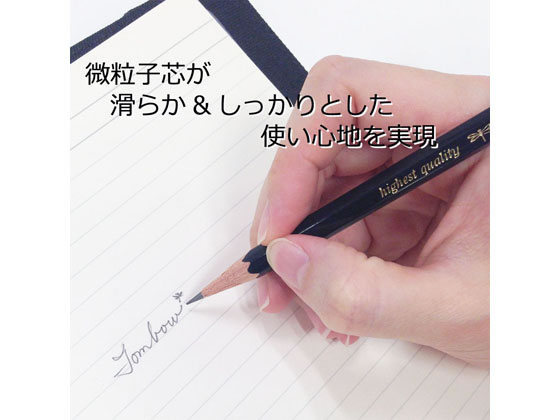 微粒子芯が
滑らか＆しっかりとした
使い心地を実現
highest quality
Tombow